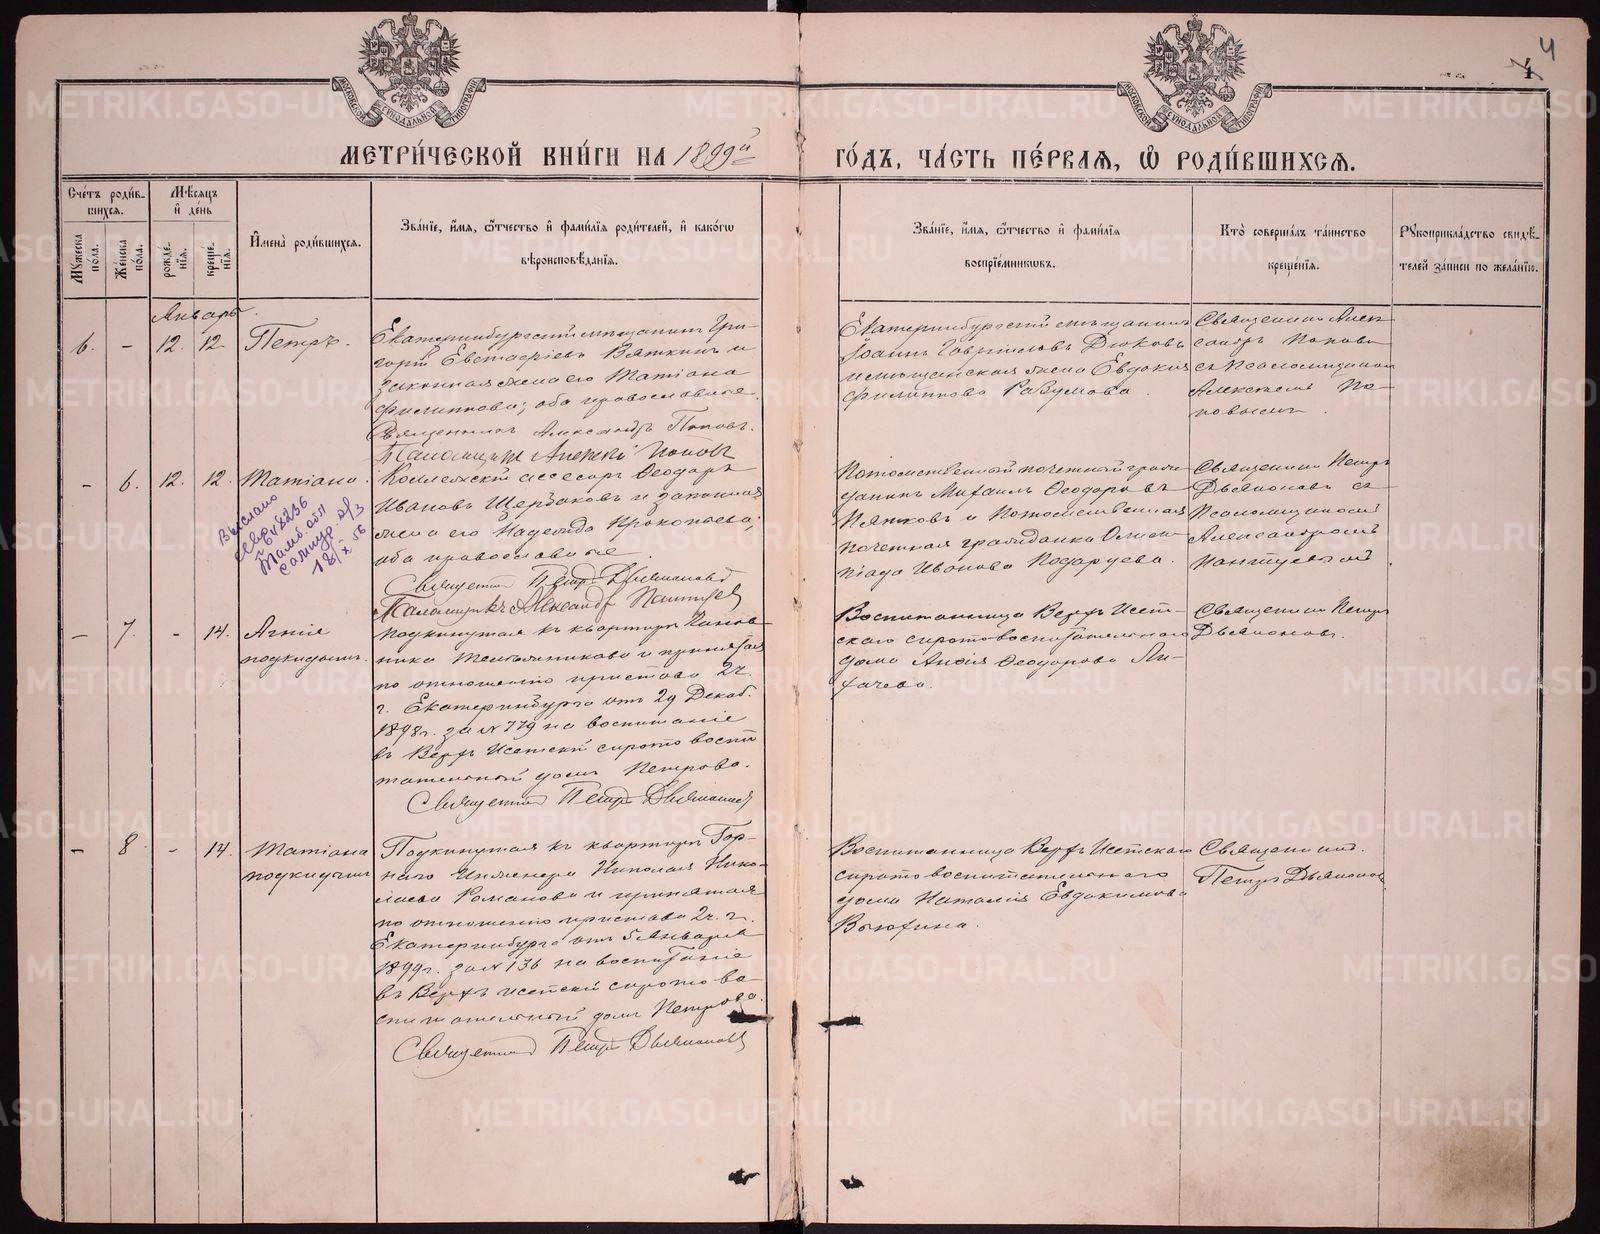 МЕТРИ́ЧЕСКОЙ КНИ́ГИ НА 1899й
ГО́ДЪ, ЧА́СТЬ ПЕ́РВАѦ, Ѡ҆ РОДИ́ВШИХСѦ.
4
МОСКОВСКОЙ СѴНОДАЛЬНОЙ ТИПОГРАФІИ
МОСКОВСКОЙ СѴНОДАЛЬНОЙ ТИПОГРАФІИ
Сче́тъ роди́в-
шихсѧ.
Мꙋжеска по́ла.
Же́нска по́ла.
Мѣ́сѧцъ
и҆ де́нь
рожде́-
нїѧ.
креще́-
нїѧ.
И҆мена̀ роди́вшихсѧ.
Зва́нїе, и҆́мѧ, ѻ҆́тчество и҆ фами́лїѧ роди́телей, и҆ како́гѡ
вѣроисповѣ́данїѧ.
Зва́нїе, и҆́мѧ, ѻ҆́тчество и҆ фами́лїѧ
воспрїе́мникѡвъ.
Кто̀ соверша́лъ та́инство
креще́нїѧ.
Рꙋкоприкла́дство свидѣ́-
телей за́писи по жела́нїю.
Январь.
6. - 12. 12. Петръ.
Екатеринбургскій мѣщанинъ Гри-
горій Евстафіевъ Вяткинъ и
законная жена его Татіана
Филиппова; оба православные.
Священникъ Александръ Поповъ.
Псаломщикъ Алексѣй Поповъ
Екатеринбургскій мѣщанинъ
Іоаннъ Гавріиловъ Дюковъ
и мѣщанская жена Евдокія
Филиппова Разумова.
Священникъ Алек-
сандръ Поповъ
съ псаломщикомъ
Алексѣемъ По-
повымъ.
- 6. 12. 12. Татіана.
Коллежскій ассесоръ Ѳеодоръ
Ивановъ Щербаковъ и законная
жена его Надежда Прокопьева;
оба православные.
Священникъ Петръ Дьяконовъ
Псаломщикъ Александръ Пантуевъ
Потомственный почетный граж-
данинъ Михаилъ Ѳеодоровъ
Пятковъ и Потомственная
почетная гражданка Олим-
піада Иванова Подаруева.
Священникъ Петръ
Дьяконовъ съ
псаломщикомъ
Александромъ
Пантуевымъ
Выслано
18/X 56
- 7. - 14. Агнія
подкидышъ.
Подкинутая къ квартирѣ Чинов-
ника и принятая
по отношенію пристава 2 ч.
г. Екатеринбурга отъ 29 Декаб.
1898 г. за № 779 на воспитаніе
въ Верхъ Исетскій сирото воспи
тательный домъ Петрова.
Священникъ Петръ Дьяконовъ
Воспитанница Верхъ Исет-
скаго сиротовоспитательнаго
дома Анѳія Ѳеодорова Ли-
хачева.
Священникъ Петръ
Дьяконовъ.
- 8 - 14. Татіана
подкидышъ
Подкинутая къ квартирѣ Гор-
наго Инженера Николая Нико-
лаева Романова и принятая
по отношенію пристава 2 ч. г.
Екатеринбурга отъ 5 Января
1899 г. за № 136 на воспитаніе
въ Верхъ Исетскій сирото во-
спитательный домъ Петрова.
Священникъ Петръ Дьяконовъ
Воспитанница Верхъ Исетскаго
сирото воспитательнаго
дома Наталія Евдокимова
Вьюхина.
Священникъ
Петръ Дьяконовъ
METRIKI.GASO-URAL.RU